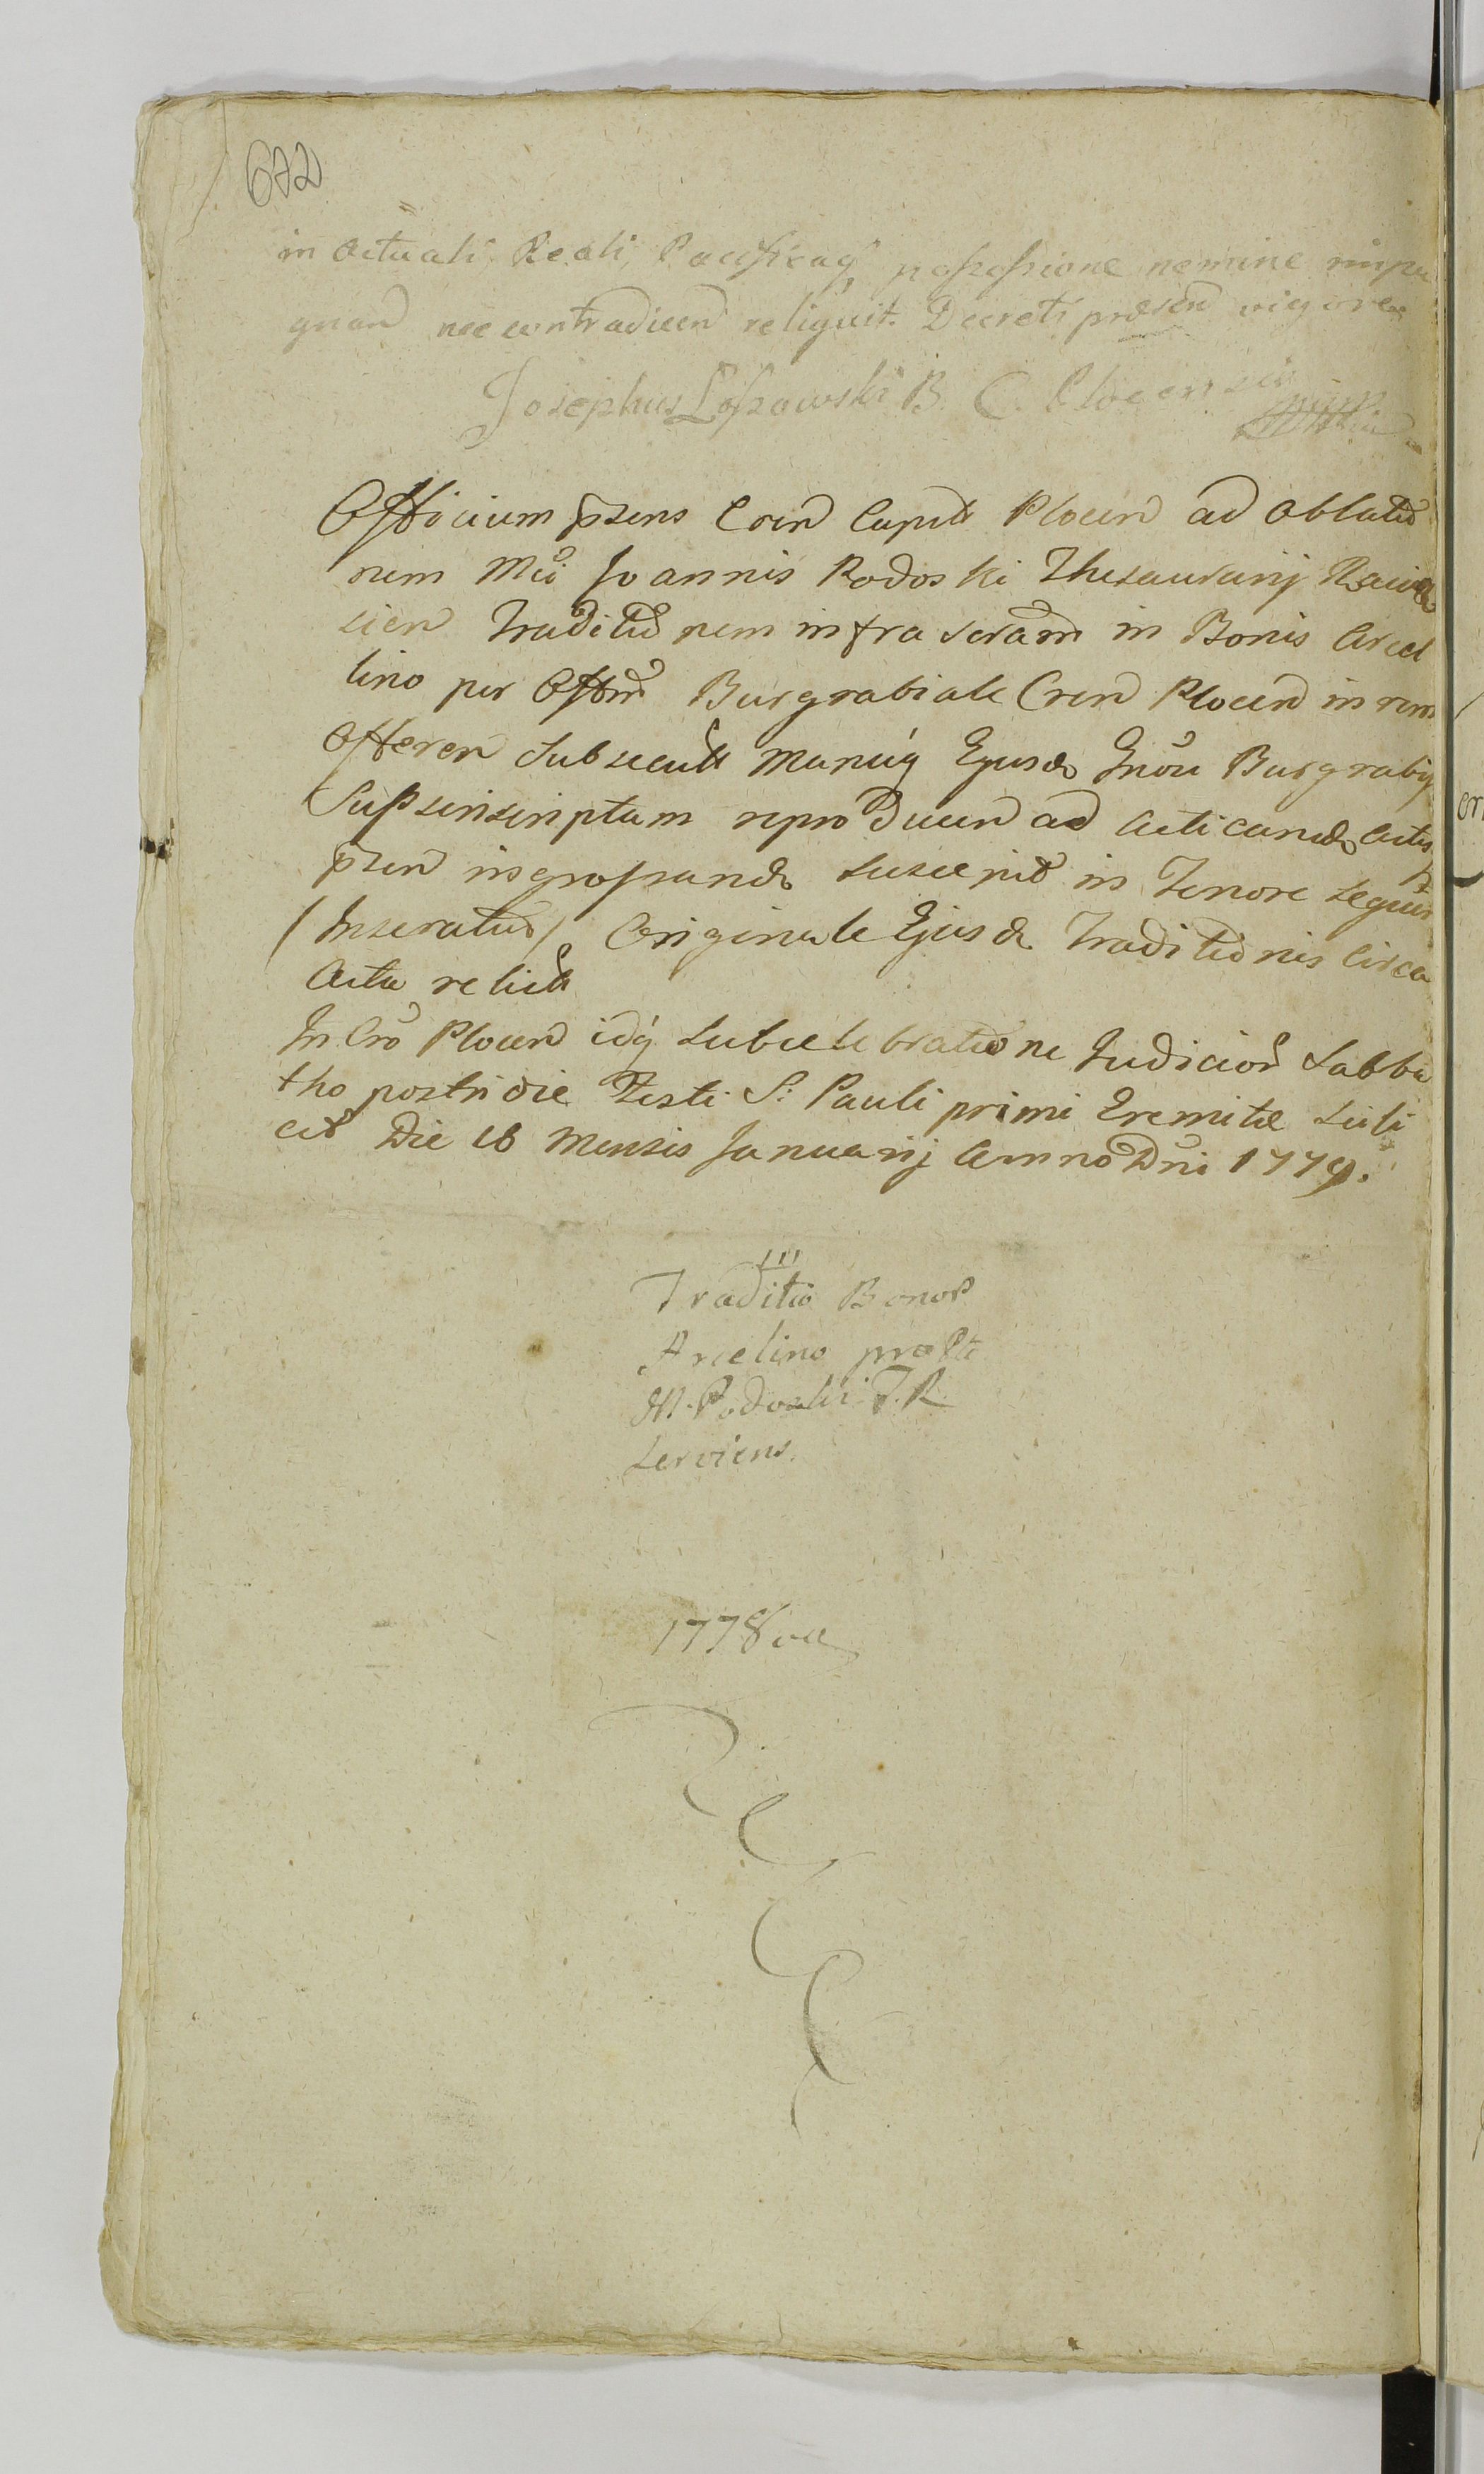 672
in Actuali Reali, Pacificaq possessione nemine impu
gnan nec contradicen reliquit. Decreti praesen vigore
Josephus Łossowski B. C. Plocensis mpp
Officium psens Cren Capitt Plocen ad oblatio
nem Mci Joannis Rodoski Thesaurarij Rawa
cien Traditionem infrascram in Bonis Arcel
lino per Offm Burgrabiale Cren Plocen in rem
Offeren subsecutt Manuq Ejusd Gnosi Burgrabij
supsinscriptam reproducen ad acticand Actisq
psen ingrossand suscepit in Tenore sequen
(Inseratur) Originale Ejusd Traditionis circa
Acta relictt
In Cro Plocen idq sub celebratione Judicior Sabba
tho postridie Festi S: Pauli primi Eremitae scili
cet Die 16 Mensis Januarij Anno Dni 1779.
Traditio Bonor
Arcelino pro Pte
M. Rodoski T. R.
serviens.
1778